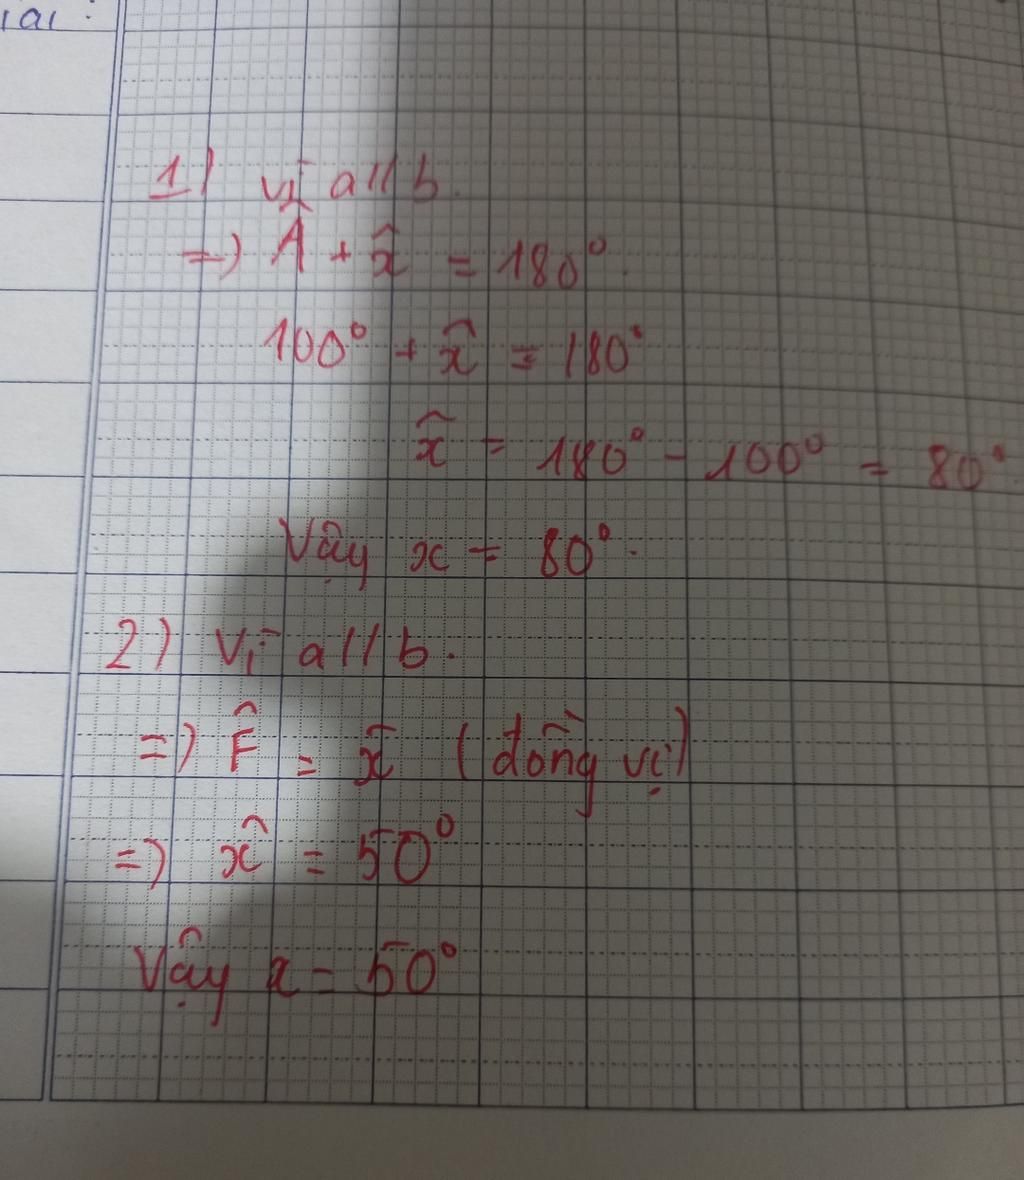 1) vì a // b.
=) Â + x̂ = 180°.
100° + x̂ = 180°
x̂ = 180° - 100° = 80°.
Vậy x = 80°.
2) Vì a // b.
=) F̂ = x̂ (đồng vị)
=) x̂ = 50°
Vậy x = 50°